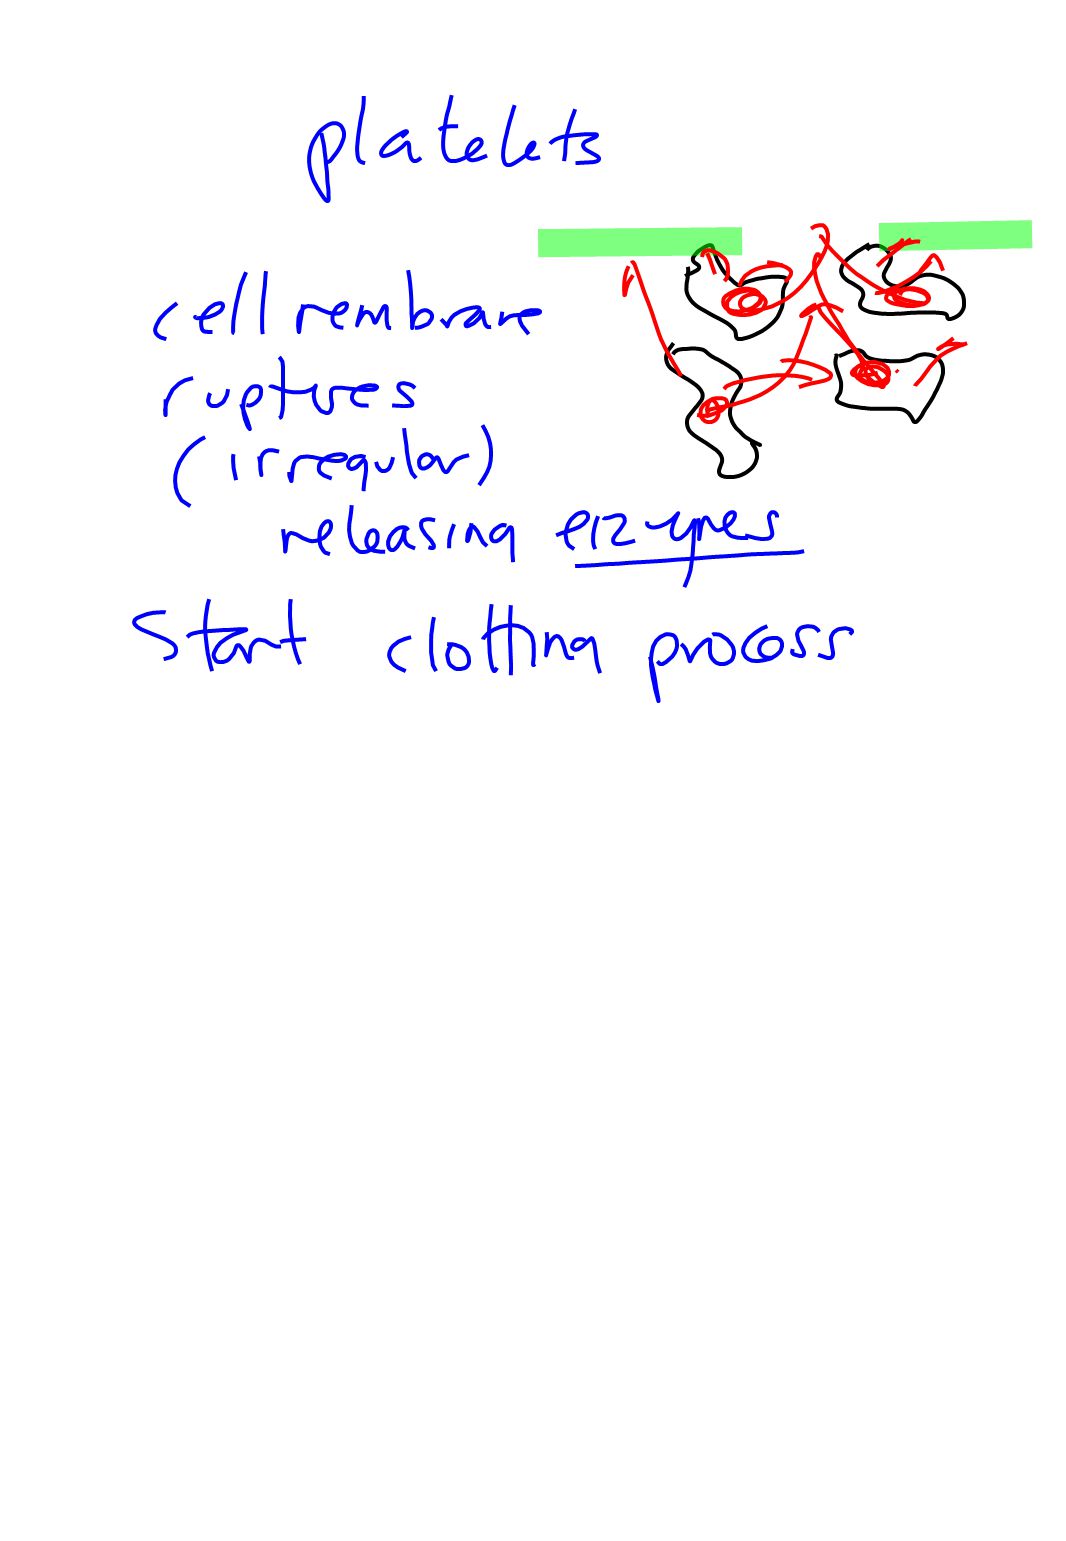 platelets
cell membrane
ruptures
(irregular)
releasing enzymes
Start clotting process